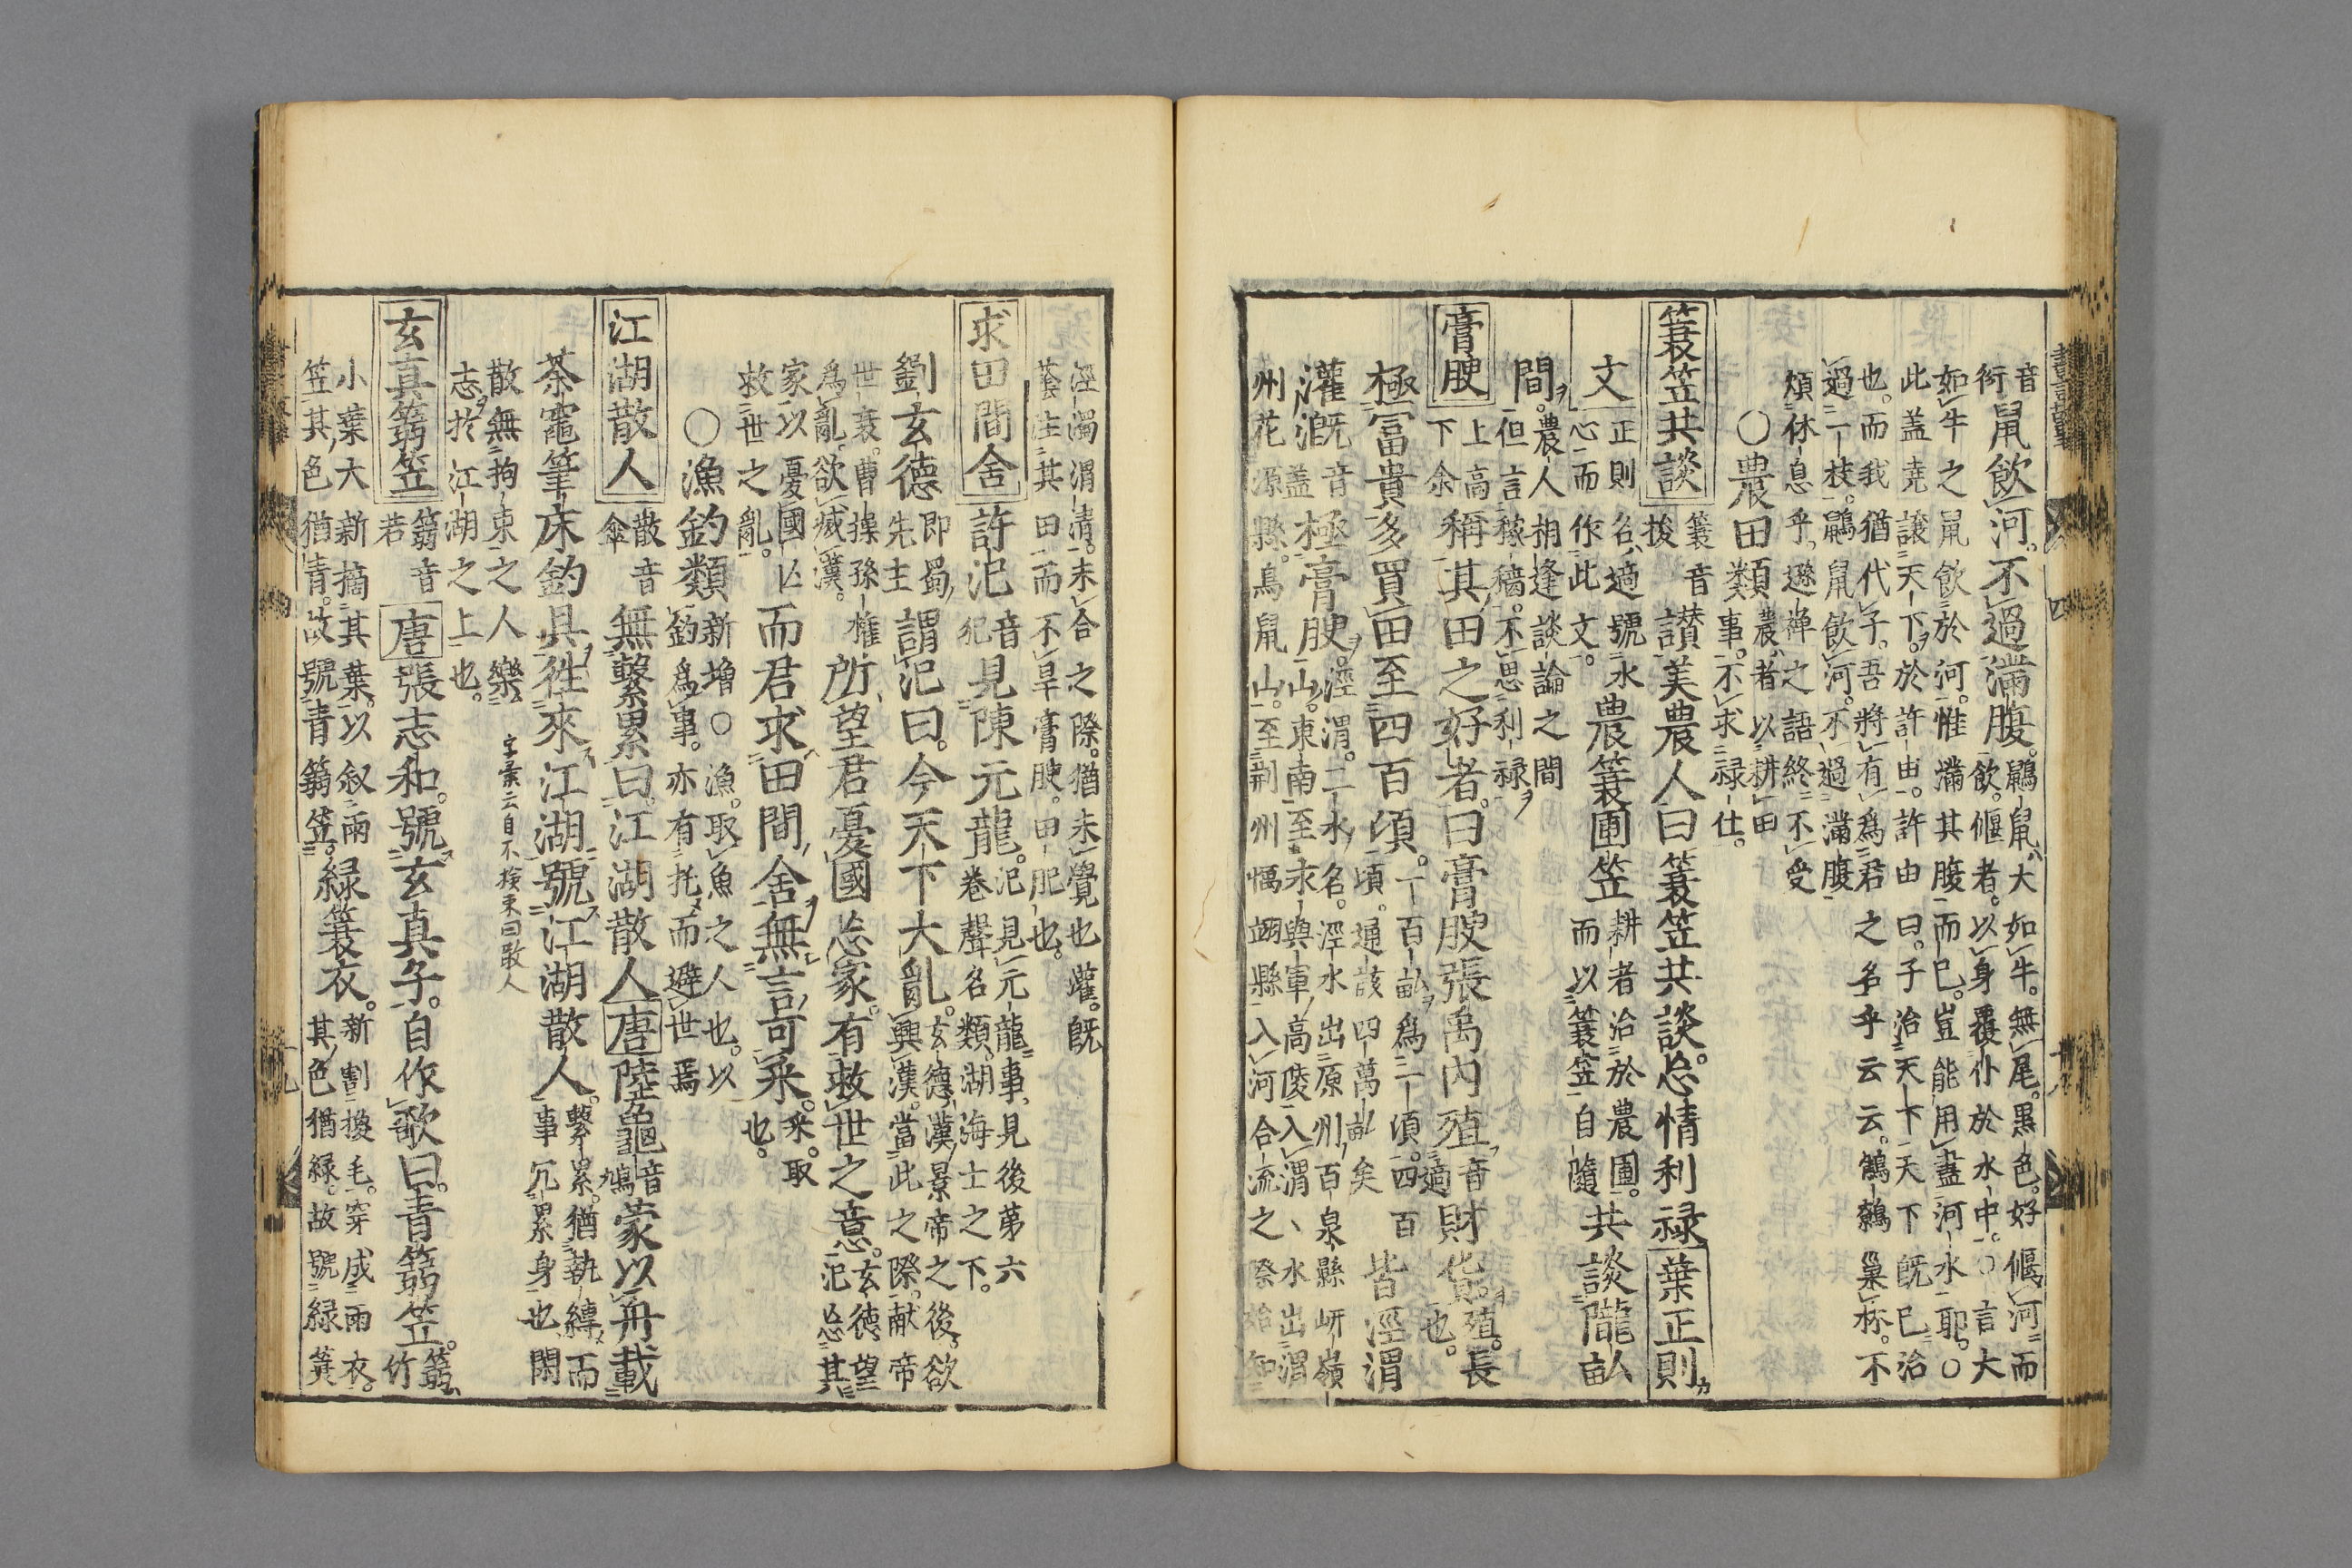 音 鼠飲河。不過滿腹。鼴鼠大如牛。無尾。黒色。好偃河而
飲。偃者。以身覆仆於水中。○言大
如牛之鼠飲於河。惟滿其腹而已。豈能用盡河水耶。○
此蓋堯譲天下。於許由。許由曰。子治天下天下既已治
也。而我猶代子。吾將有為君之名乎云云。鷦鷯巢林。不
過一枝。鼴鼠飲河。不過滿腹
煩休息乎。遜禅之語終不受
○農田類 農者以耕田
事。不求禄仕。
簑笠共談 簑音
梭 讃美農人曰簑笠共談。忩情利禄 葉正則
文 正則名、適號水
心而作此文。 農簑圃笠 耕者治於農圃。
而以簑笠自隨 共談隴畝
間。農人相逢談論之間
但言稼穡。不思利禄
膏腴 上高
下余 稱其田之好者。曰膏腴張禹内殖 音
財貨。殖。長
也。
極冨貴多買田至四百頃。一百畝為一頃。四百
頃。通該四萬畝矣 皆涇渭
灌漑 音
盖 極膏腴。涇渭。二水名。涇水出原州百泉縣岍嶺
山。東南至求與軍高陵入渭、水出渭
州花源縣。鳥鼠山。至荆州馮翊縣入河合流之際始知
涇濁渭清。未合之際。猶未覺也灌。既
蔭注其田而不旱膏腴。田肥也。
求田間舍 許汜 音
犯 見陳元龍。汜見元龍事、見後第六
巻聲名類。湖海士之下。
劉玄德 即蜀
先主 謂汜曰。今天下大亂。玄德漢景帝之後。欲
興漢。當此之際。献帝
世衰。曹操孫權
為亂。欲滅漢。 所望君憂國忩家。有救世之意。玄德望
汜忩其
家以憂國亡
救世之亂。 而君求田間舍無言可采。采。取
也。
○漁釣類 新增○漁。取魚之人也。以
釣為事。亦有托而避世焉
江湖散人 散音
傘 無繋累曰江湖散人 唐 陸龜 音
鳩 蒙以舟載
茶竈筆床釣具徃來江湖號江湖散人。繋累。猶執縛而
事冗累身也閑
散無拘束之人樂
志於江湖之上也。
字彙云自不檢束曰散人
玄真篛笠 篛音
若 唐 張志和。號玄真子。自作歌曰。青篛笠。篛
竹
小葉大新摘其葉。以叙雨
笠其色猶青。故號青篛笠。 緑簑衣。新割㯶毛。穿成雨衣。
其色猶緑。故號緑簑